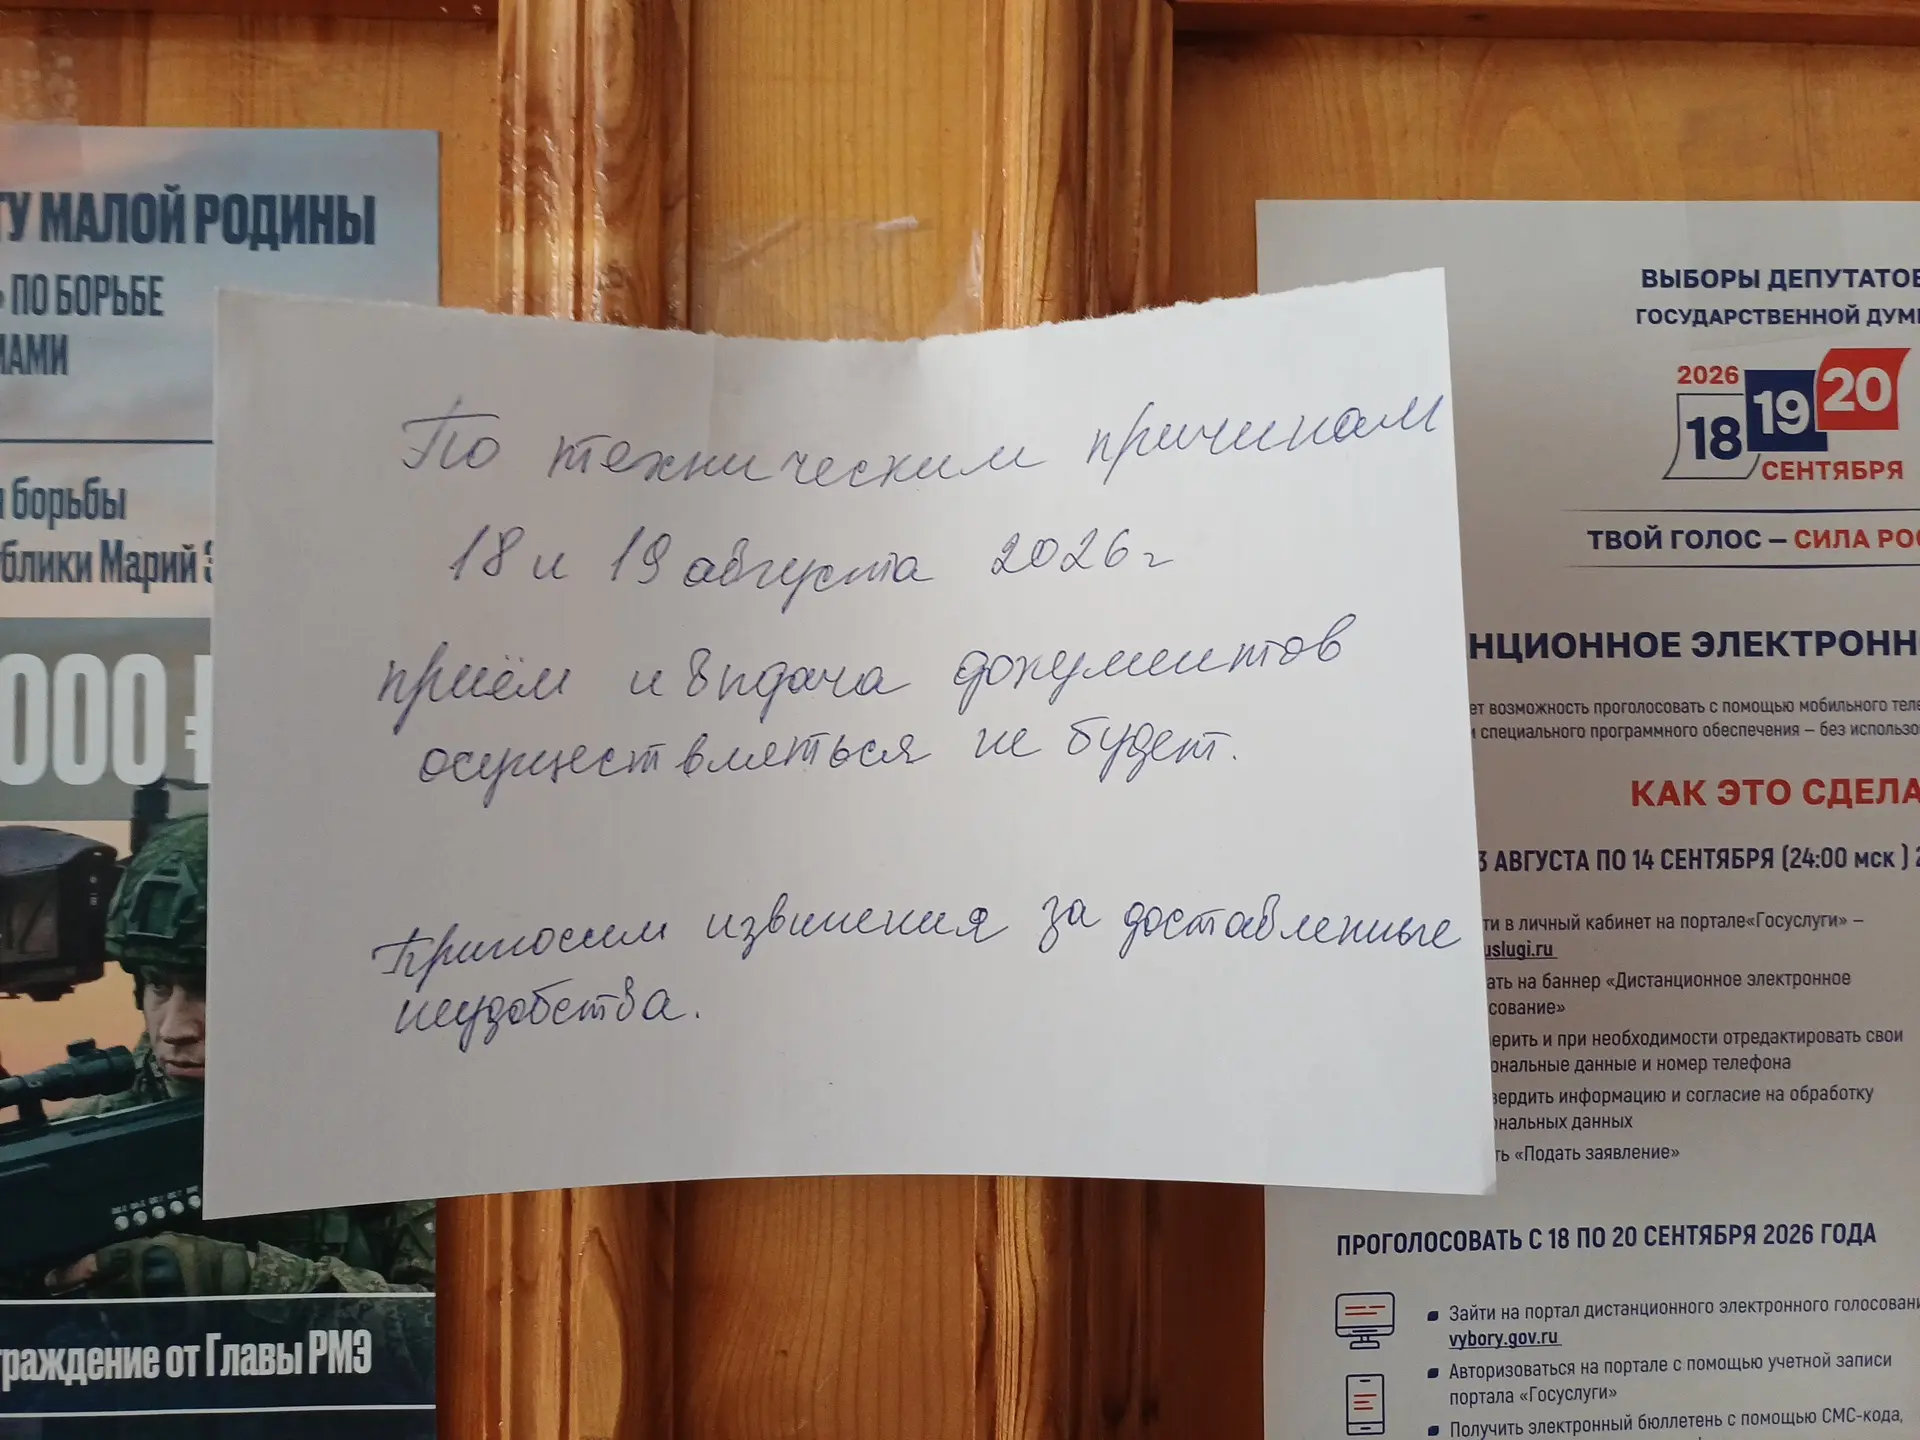 ТУ МАЛОЙ РОДИНЫ
ПО БОРЬБЕ
АМИ
борьбы
блики Марий Э
000 ₽
граждение от Главы РМЭ
По техническим причинам
18 и 19 августа 2026 г
приём и выдача документов
осуществляться не будет.
Приносим извинения за доставленные
неудобства.
ВЫБОРЫ ДЕПУТАТОВ
ГОСУДАРСТВЕННОЙ ДУМЫ
2026
18 19 20
СЕНТЯБРЯ
ТВОЙ ГОЛОС – СИЛА РОС
НЦИОННОЕ ЭЛЕКТРОНН
ет возможность проголосовать с помощью мобильного теле
и специального программного обеспечения – без использо
КАК ЭТО СДЕЛА
3 АВГУСТА ПО 14 СЕНТЯБРЯ (24:00 мск ) 2
ти в личный кабинет на портале«Госуслуги» –
uslugi.ru
ать на баннер «Дистанционное электронное
сование»
ерить и при необходимости отредактировать свои
ональные данные и номер телефона
вердить информацию и согласие на обработку
ональных данных
ть «Подать заявление»
ПРОГОЛОСОВАТЬ С 18 ПО 20 СЕНТЯБРЯ 2026 ГОДА
Зайти на портал дистанционного электронного голосовани
vybory.gov.ru
Авторизоваться на портале с помощью учетной записи
портала «Госуслуги»
Получить электронный бюллетень с помощью СМС-кода,